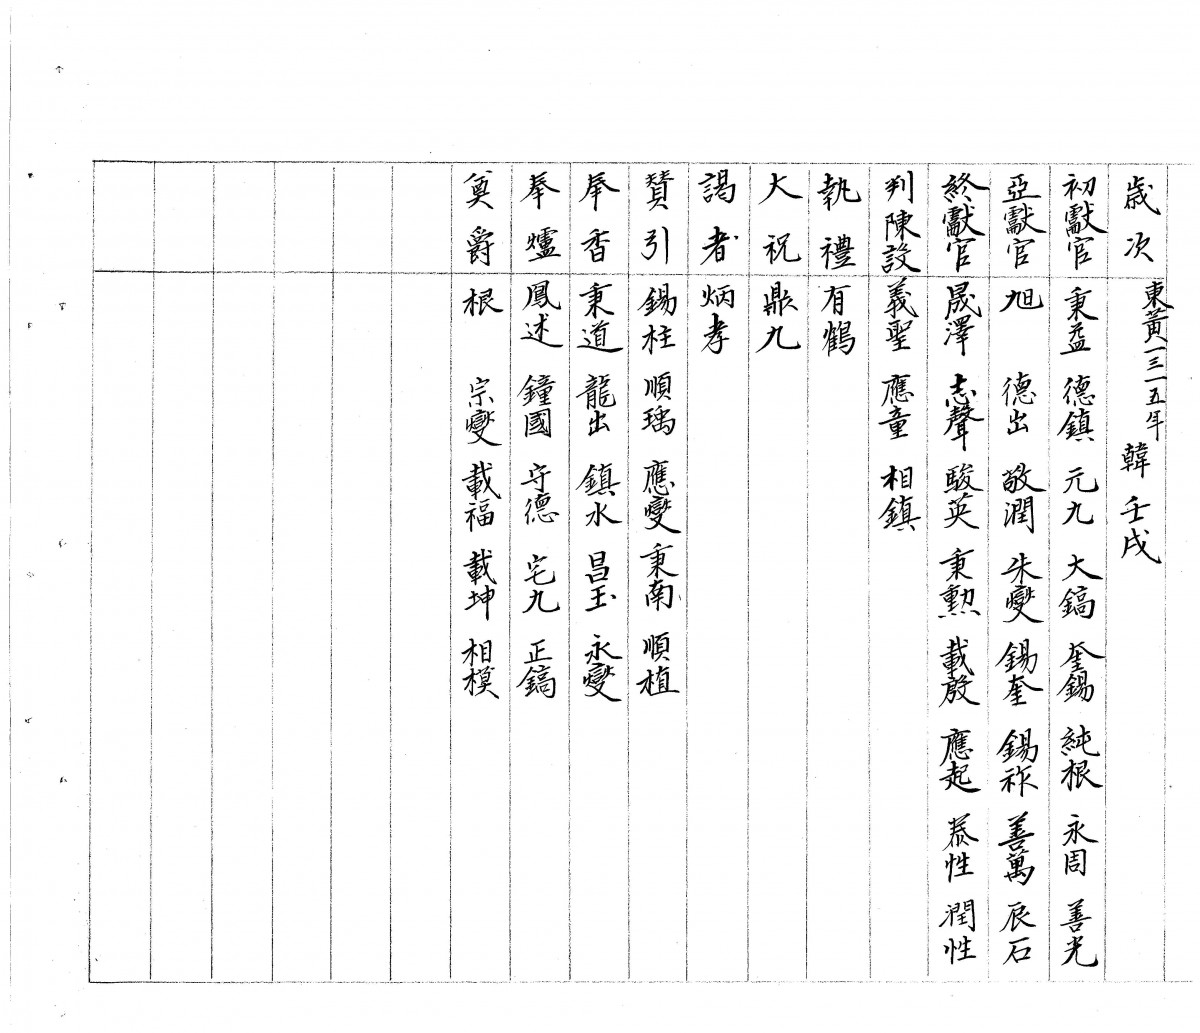 歲次 東黃一三一五年 韓 壬戌
初獻官 秉益 德鎮 元九 大鎬 奎錫 純根 永周 善光
亞獻官 旭 德出 敬潤 朱燮 錫奎 錫祚 善萬 辰石
終獻官 晟澤 志聲 駿英 秉勲 載殷 應起 恭性 潤性
判陳設 義聖 應童 相鎮
執禮 有鶴
大祝 鼎九
謁者 炳孝
賛引 錫柱 順瑀 應燮 秉南 順植
奉香 秉道 龍出 鎮水 昌玉 永燮
奉爐 鳳述 鐘國 守德 宅九 正鎬
奠爵 根 宗燮 載福 載坤 相模